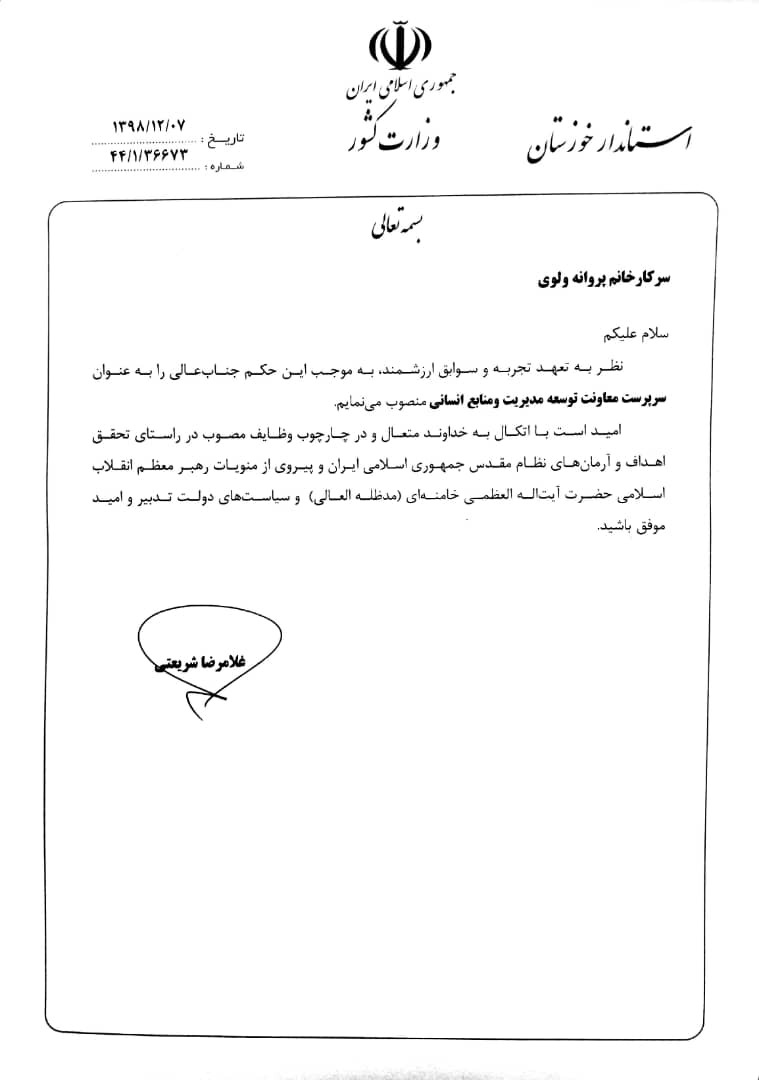 جمهوری اسلامی ایران
وزارت کشور
استاندار خوزستان
تاریخ : ۱۳۹۸/۱۲/۰۷
شماره : ۴۴/۱/۳۶۶۷۳
بسمه تعالی
سرکارخانم پروانه ولوی
سلام علیکم
نظر به تعهد تجربه و سوابق ارزشمند، به موجب این حکم جناب‌عالی را به عنوان
سرپرست معاونت توسعه مدیریت ومنابع انسانی منصوب می‌نمایم.
امید است با اتکال به خداوند متعال و در چارچوب وظایف مصوب در راستای تحقق
اهداف و آرمان‌های نظام مقدس جمهوری اسلامی ایران و پیروی از منویات رهبر معظم انقلاب
اسلامی حضرت آیت‌اله العظمی خامنه‌ای (مدظله العالی) و سیاست‌های دولت تدبیر و امید
موفق باشید.
غلامرضا شریعتی